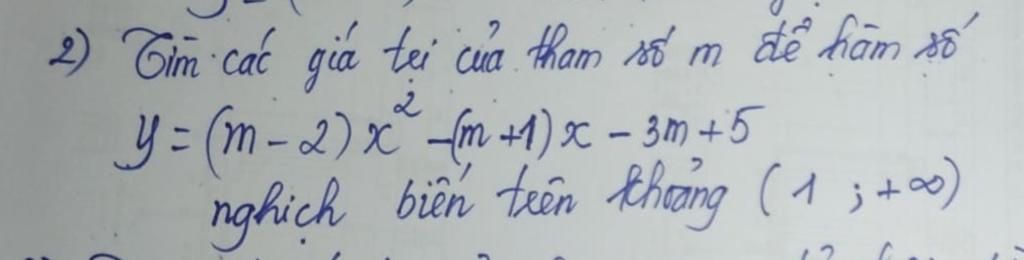 2) Tìm các giá trị của tham số m để hàm số
y = (m - 2) x² - (m + 1) x - 3m + 5
nghịch biến trên khoảng ( 1 ; + ∞)